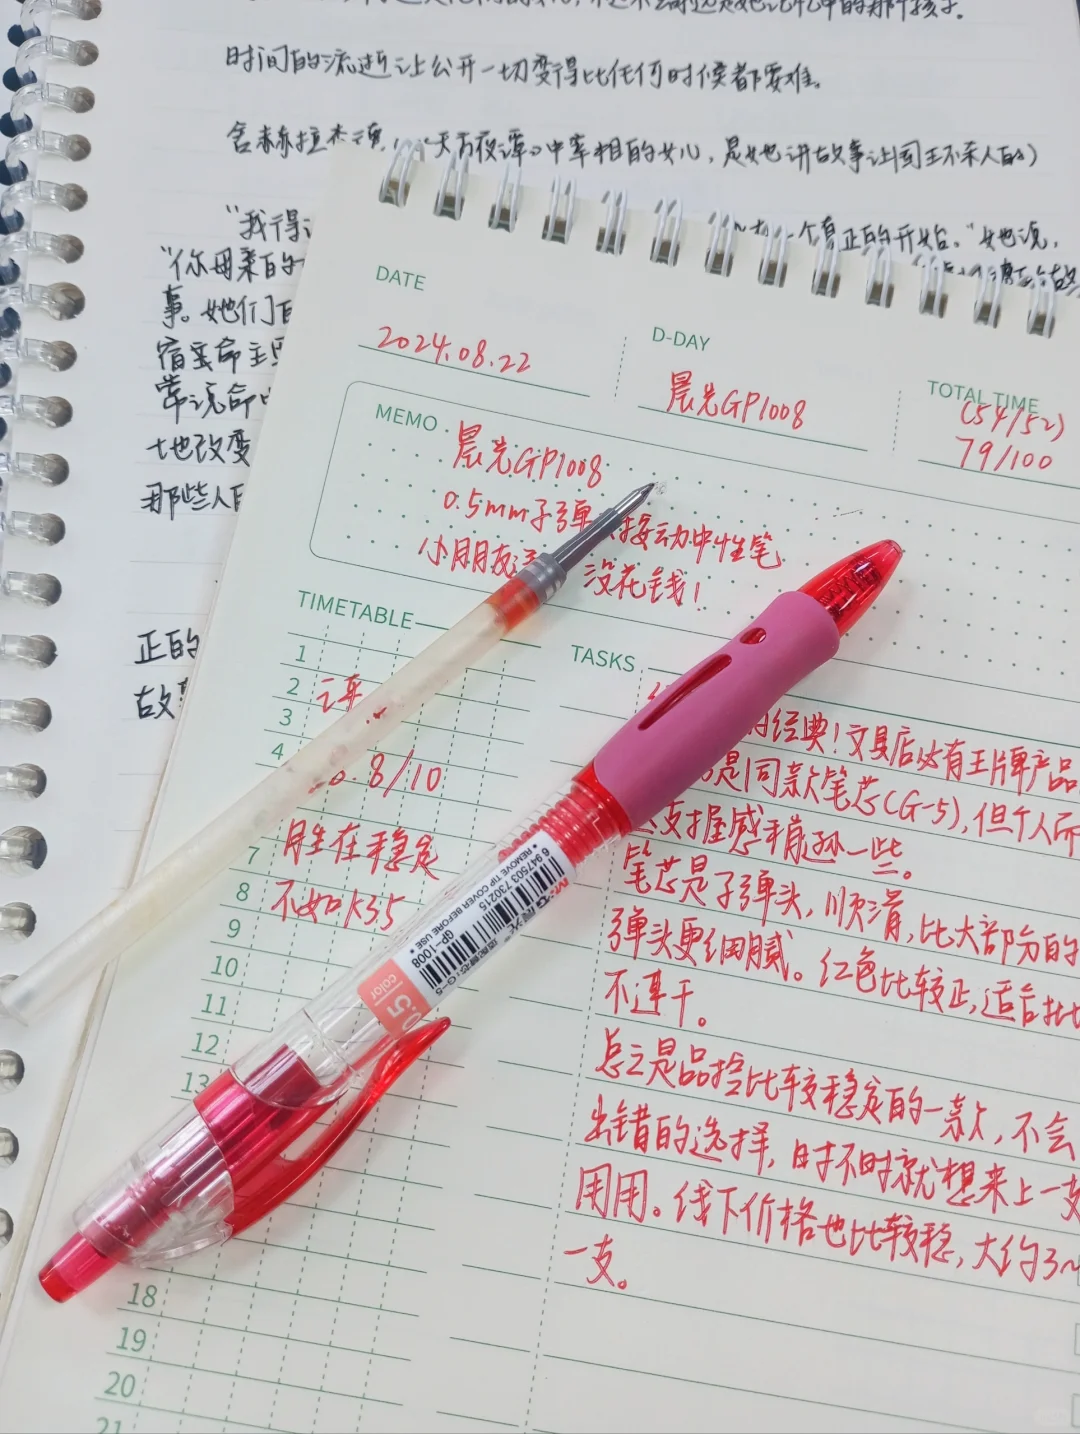 时间的流逝让公开一切变得比任何时候都要难。
天方夜谭》中宰相的女儿，是她讲故事让国王不杀人的）
"我得
一个真正的开始。"她说，
"你母亲的
事。她们
宿
常说命
地改变
那些人
正的
故
DATE
2024.08.22
D-DAY
晨光GP1008
TOTAL TIME
(54/52)
79/100
MEMO
晨光GP1008
0.5mm子弹 按动中性笔
小朋友 没花钱！
TIMETABLE
1
2
3
4
7
8
9
10
11
12
13
18
19
20
21
8/10
胜在稳定
不如K35
TASKS
的经典！文具店必有王牌产品
是同款笔芯(G-5)，但个人
支握感稍逊一些。
笔芯是子弹头，顺滑，比大部分的
弹头更细腻。红色比较正，适合批
不透干。
总之是品控比较稳定的一款，不会
出错的选择，时不时就想来上一支
用用。线下价格也比较稳，大约3~
一支。
6 947503 730215
REMOVE TIP COVER BEFORE USE
GP-1008
G-5
color
0.5